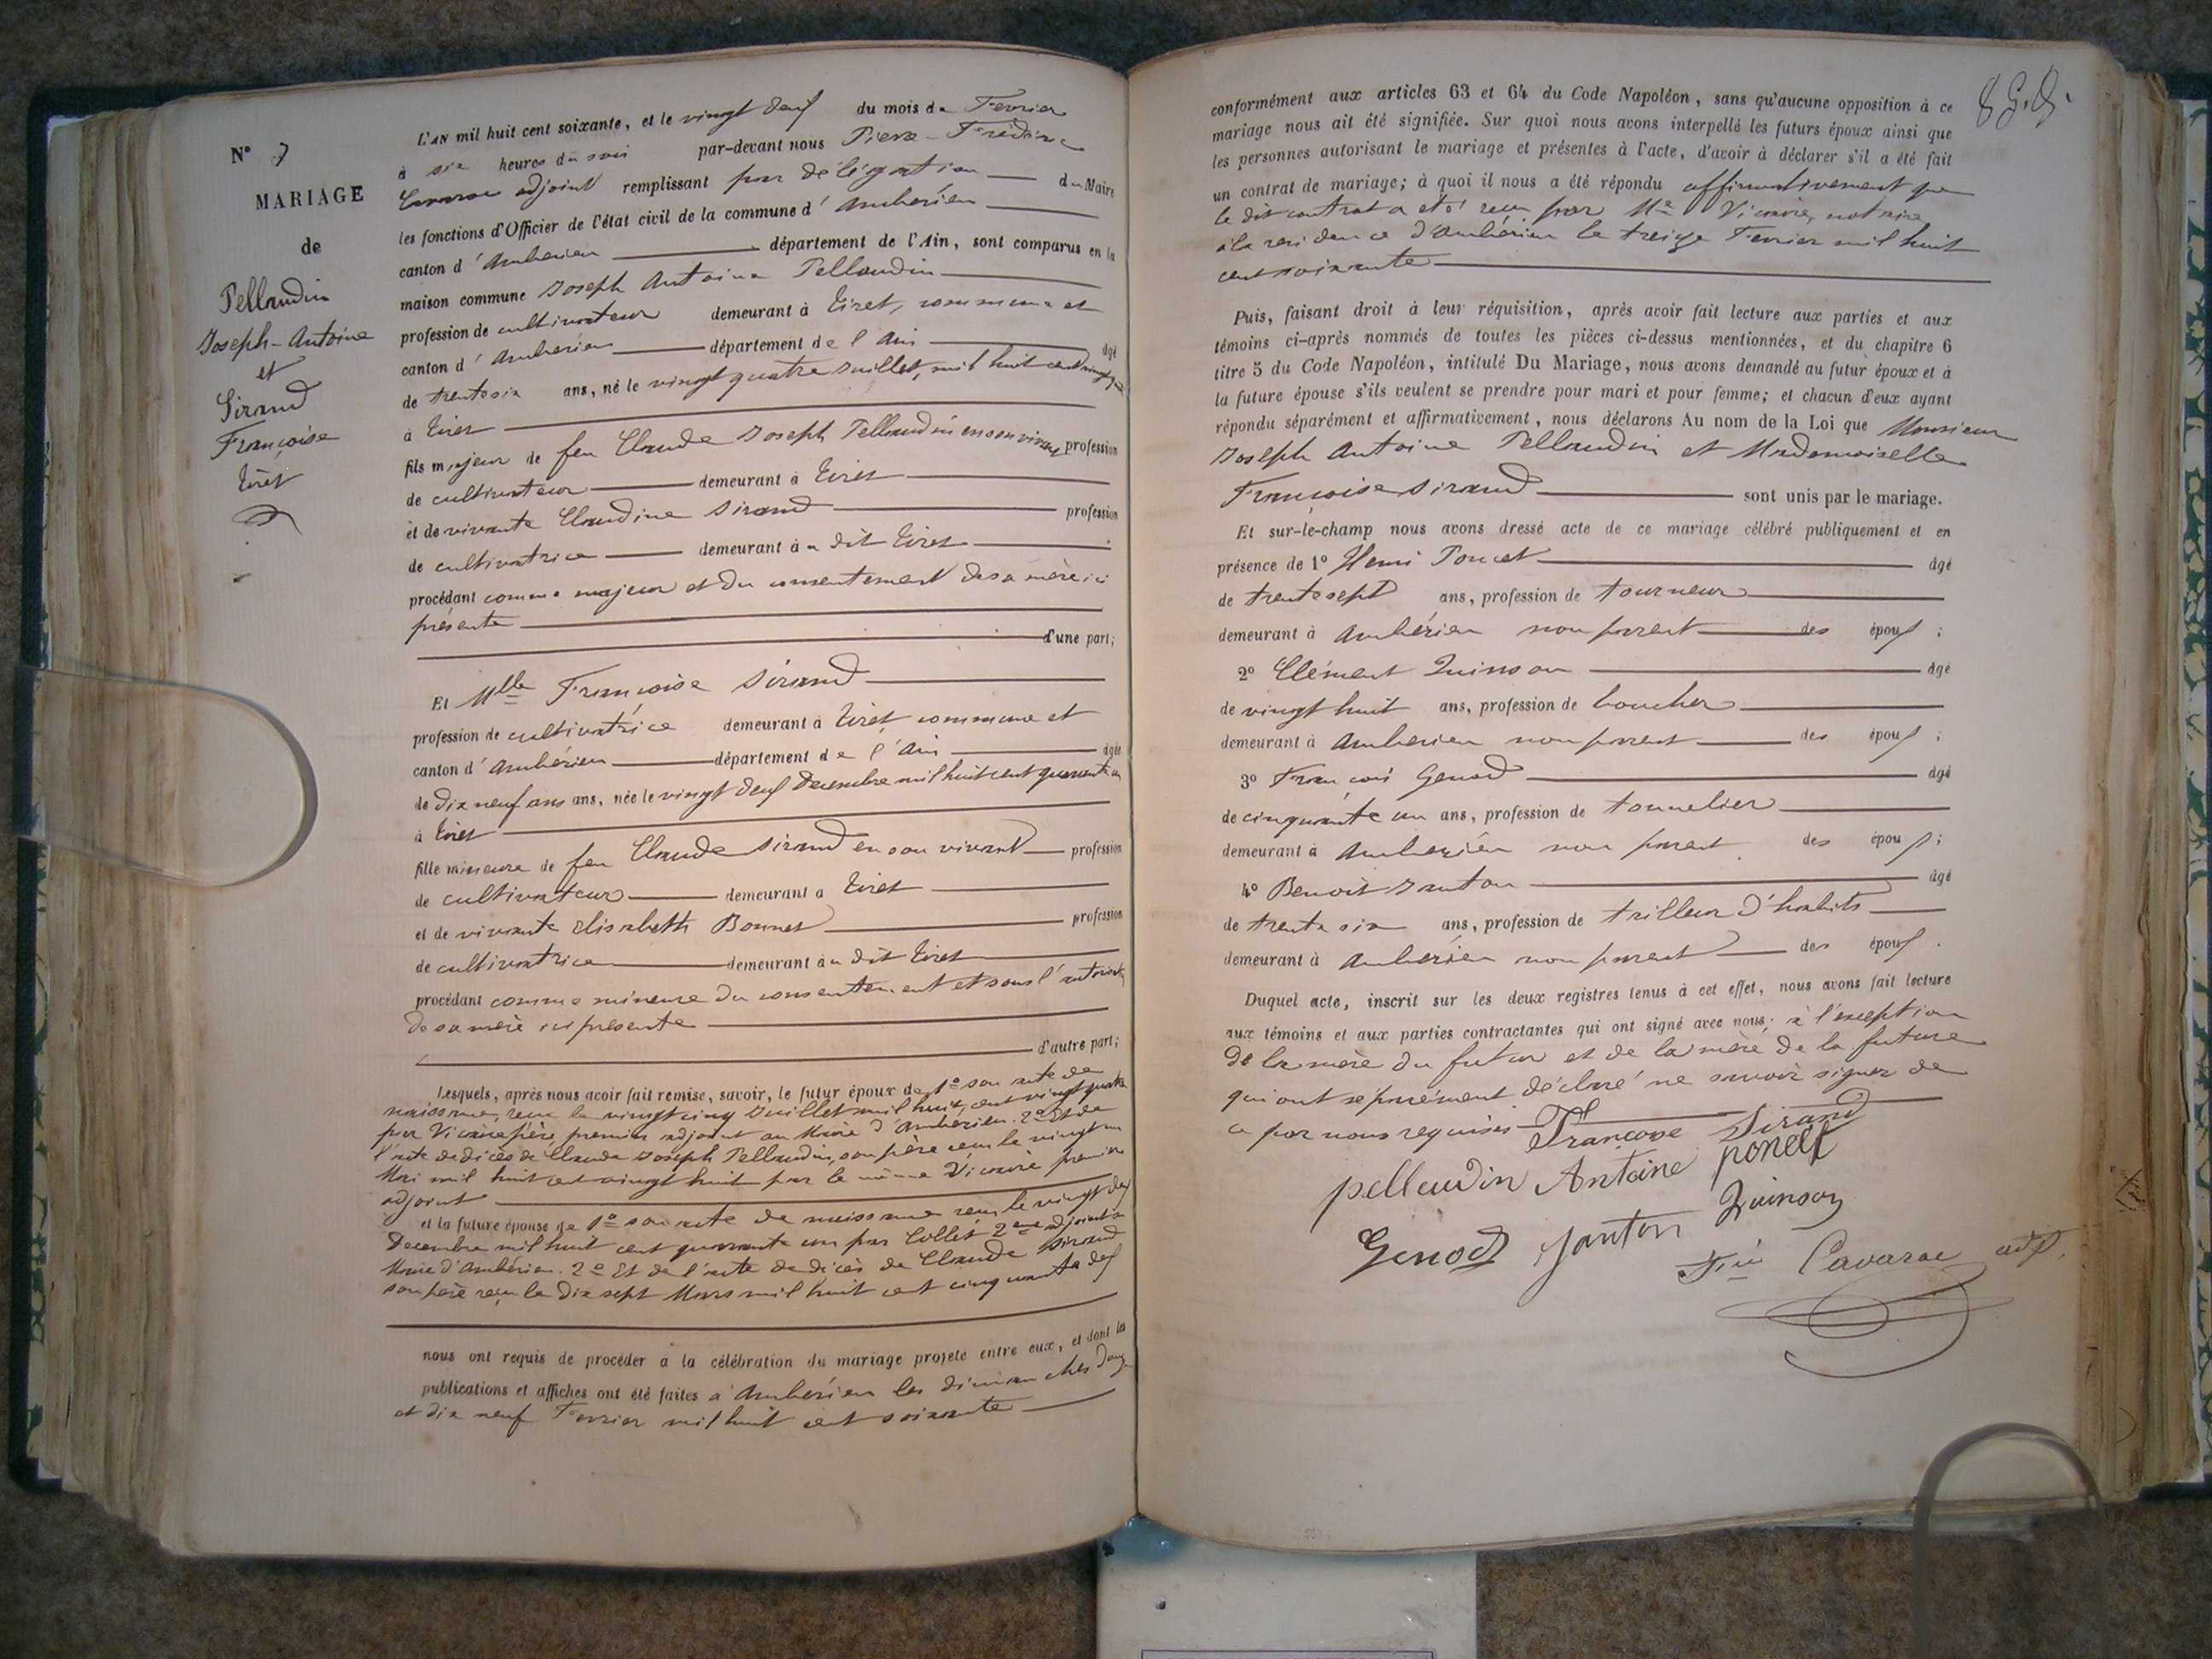 N° 7
MARIAGE
de
Pellaudin
Joseph-Antoine
et
Sirand
Françoise
Tiret
L'AN mil huit cent soixante, et le vingt deux du mois de Fevrier
à six heures du soir par-devant nous Pierre-Frédéric
Cavarae adjoint remplissant par délégation du Maire
les fonctions d'Officier de l'état civil de la commune d'Ambérieu
canton d'Amberieu département de l'Ain, sont comparus en la
maison commune Joseph Antoine Pellaudin
profession de cultivateur demeurant à Tiret, commune et
canton d'Ambérieu département de l'Ain âgé
de trente six ans, né le vingt quatre Juillet, mil huit cent vingt
à Tiret
fils majeur de feu Claude Joseph Pellaudin en son vivant profession
de cultivateur demeurant à Tiret
et de vivante Claudine Sirand profession
de cultivatrice demeurant à u dit Tiret
procédant comme majeur et du consentement de sa mère ici
présente
d'une part;
Et Mlle Françoise Sirand
profession de cultivatrice demeurant à Tiret commune et
canton d'Ambérieu département de l'Ain âgée
de dix neuf ans ans, née le vingt deux Decembre mil huit cent quarante un
à Tiret
fille mineure de feu Claude Sirand en son vivant profession
de cultivateur demeurant a Tiret
et de vivante Elisabeth Bonnet profession
de cultivatrice demeurant à u dit Tiret
procédant comme mineure du consentement et sous l'autorité
de sa mère ici présente
d'autre part;
Lesquels, après nous avoir fait remise, savoir, le futur époux de 1° son acte de
naissance, reçu le vingt cinq Juillet mil huit cent vingt quatre
par Vicaire père, premier adjoint au Maire d'Ambérieu. 2° Et de
l'acte de décès de Claude Joseph Pellaudin, son père reçu le vingt un
Mai mil huit cent vingt huit par le même Vicaire premier
adjoint
et la future épouse de 1° son acte de naissance reçu le vingt deux
Decembre mil huit cent quarante un par Collet 2eme adjoint au
Maire d'Ambérieu. 2° Et de l'acte de décès de Claude Sirand
son père reçu le dix sept Mars mil huit cent cinquante deux
nous ont requis de procéder à la célébration du mariage projeté entre eux, et dont les
publications et affiches ont été faites à Ambérieu les dimanches douze
et dix neuf Fevrier mil huit cent soixante
conformément aux articles 63 et 64 du Code Napoléon, sans qu'aucune opposition à ce
mariage nous ait été signifiée. Sur quoi nous avons interpellé les futurs époux ainsi que
les personnes autorisant le mariage et présentes à l'acte, d'avoir à déclarer s'il a été fait
un contrat de mariage; à quoi il nous a été répondu affirmativement que
le dit contrat a été reçu par Me Vicaire, notaire
à la residence d'Ambérieu le treize Fevrier mil huit
cent soixante
Puis, faisant droit à leur réquisition, après avoir fait lecture aux parties et aux
témoins ci-après nommés de toutes les pièces ci-dessus mentionnées, et du chapitre 6
titre 5 du Code Napoléon, intitulé Du Mariage, nous avons demandé au futur époux et à
la future épouse s'ils veulent se prendre pour mari et pour femme; et chacun d'eux ayant
répondu séparément et affirmativement, nous déclarons Au nom de la Loi que Monsieur
Joseph Antoine Pellaudin et Mademoiselle
Françoise Sirand sont unis par le mariage.
Et sur-le-champ nous avons dressé acte de ce mariage célébré publiquement et en
présence de 1° Henri Poncet âgé
de trente sept ans, profession de tourneur
demeurant à Ambérieu non parent des époux ;
2° Clément Quinson âgé
de vingt huit ans, profession de boucher
demeurant à Amberieu non parent des époux ;
3° François Genod âgé
de cinquante un ans, profession de tonnelier
demeurant à Ambérieu non parent des époux ;
4° Benoit Janton âgé
de trente six ans, profession de tailleur d'habits
demeurant à Ambérieu non parent des époux.
Duquel acte, inscrit sur les deux registres tenus à cet effet, nous avons fait lecture
aux témoins et aux parties contractantes qui ont signé avec nous; à l'exception
de la mère du futur et de la mère de la future
qui ont séparément déclaré ne savoir signer de
ce par nous requises
Françoise Sirand
pellaudin Antoine poncet
Genod Janton Quinson
Fric Cavarae adj.